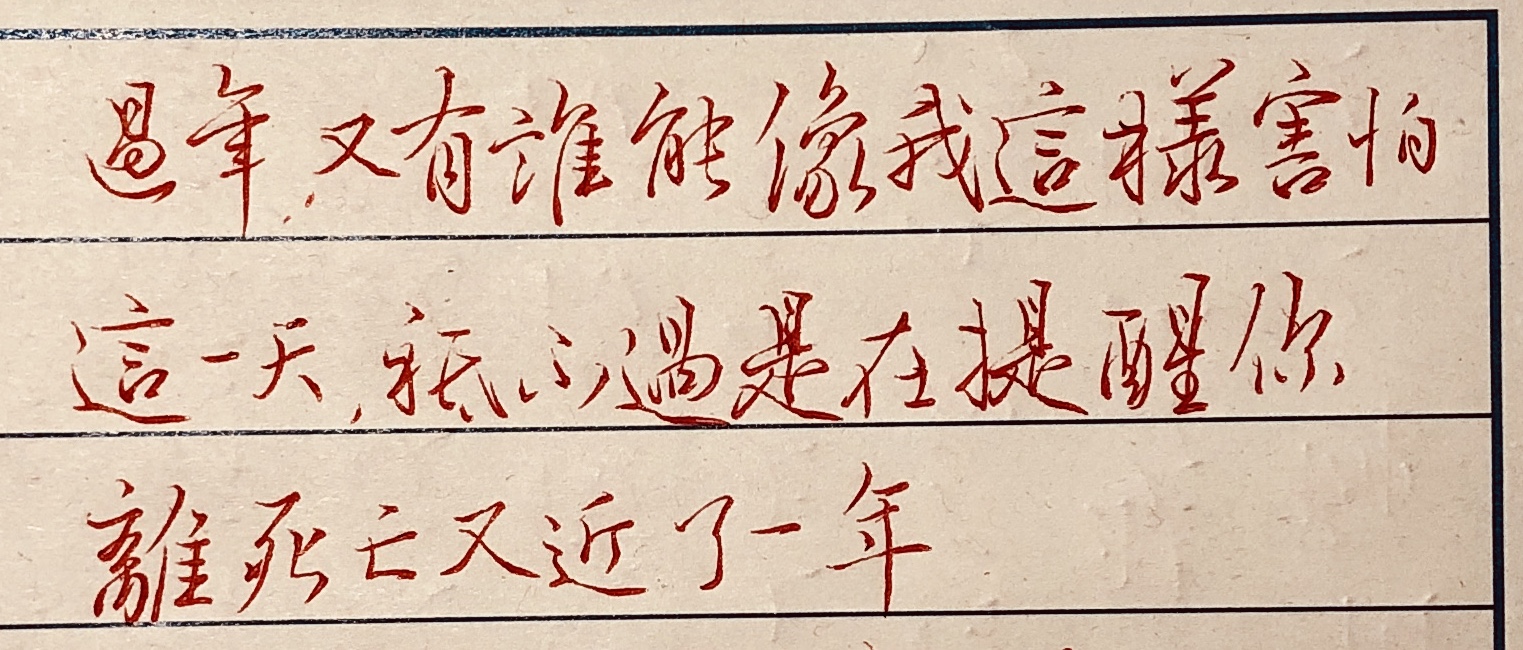 過年，又有誰能像我這樣害怕
這一天，祇不過是在提醒你
離死亡又近了一年